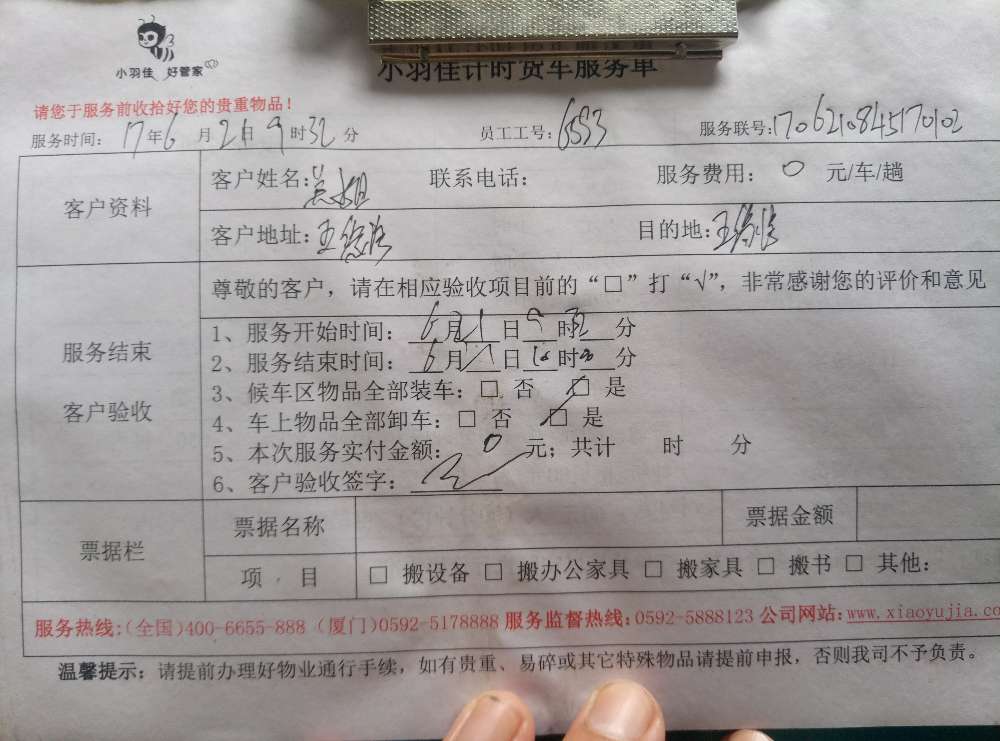 小羽佳 好管家
小羽佳计时货车服务单
请您于服务前收拾好您的贵重物品！
服务时间： 17年6月21日9时32分 员工工号：6553 服务联号：170621084517 0102
客户资料
客户姓名：吴姐 联系电话： 服务费用： 0 元/车/趟
客户地址：王 目的地：王
服务结束
客户验收
尊敬的客户，请在相应验收项目前的“□”打“√”，非常感谢您的评价和意见
1、服务开始时间： 6月21日9时32分
2、服务结束时间： 6月21日10时30分
3、候车区物品全部装车：□ 否 □ 是
4、车上物品全部卸车：□ 否 □ 是
5、本次服务实付金额： 0 元；共计 时 分
6、客户验收签字：
票据栏
票据名称 票据金额
项 目 □ 搬设备 □ 搬办公家具 □ 搬家具 □ 搬书 □ 其他：
服务热线：(全国)400-6655-888 (厦门)0592-5178888 服务监督热线：0592-5888123 公司网站：www.xiaoyujia.co
温馨提示：请提前办理好物业通行手续，如有贵重、易碎或其它特殊物品请提前申报，否则我司不予负责。